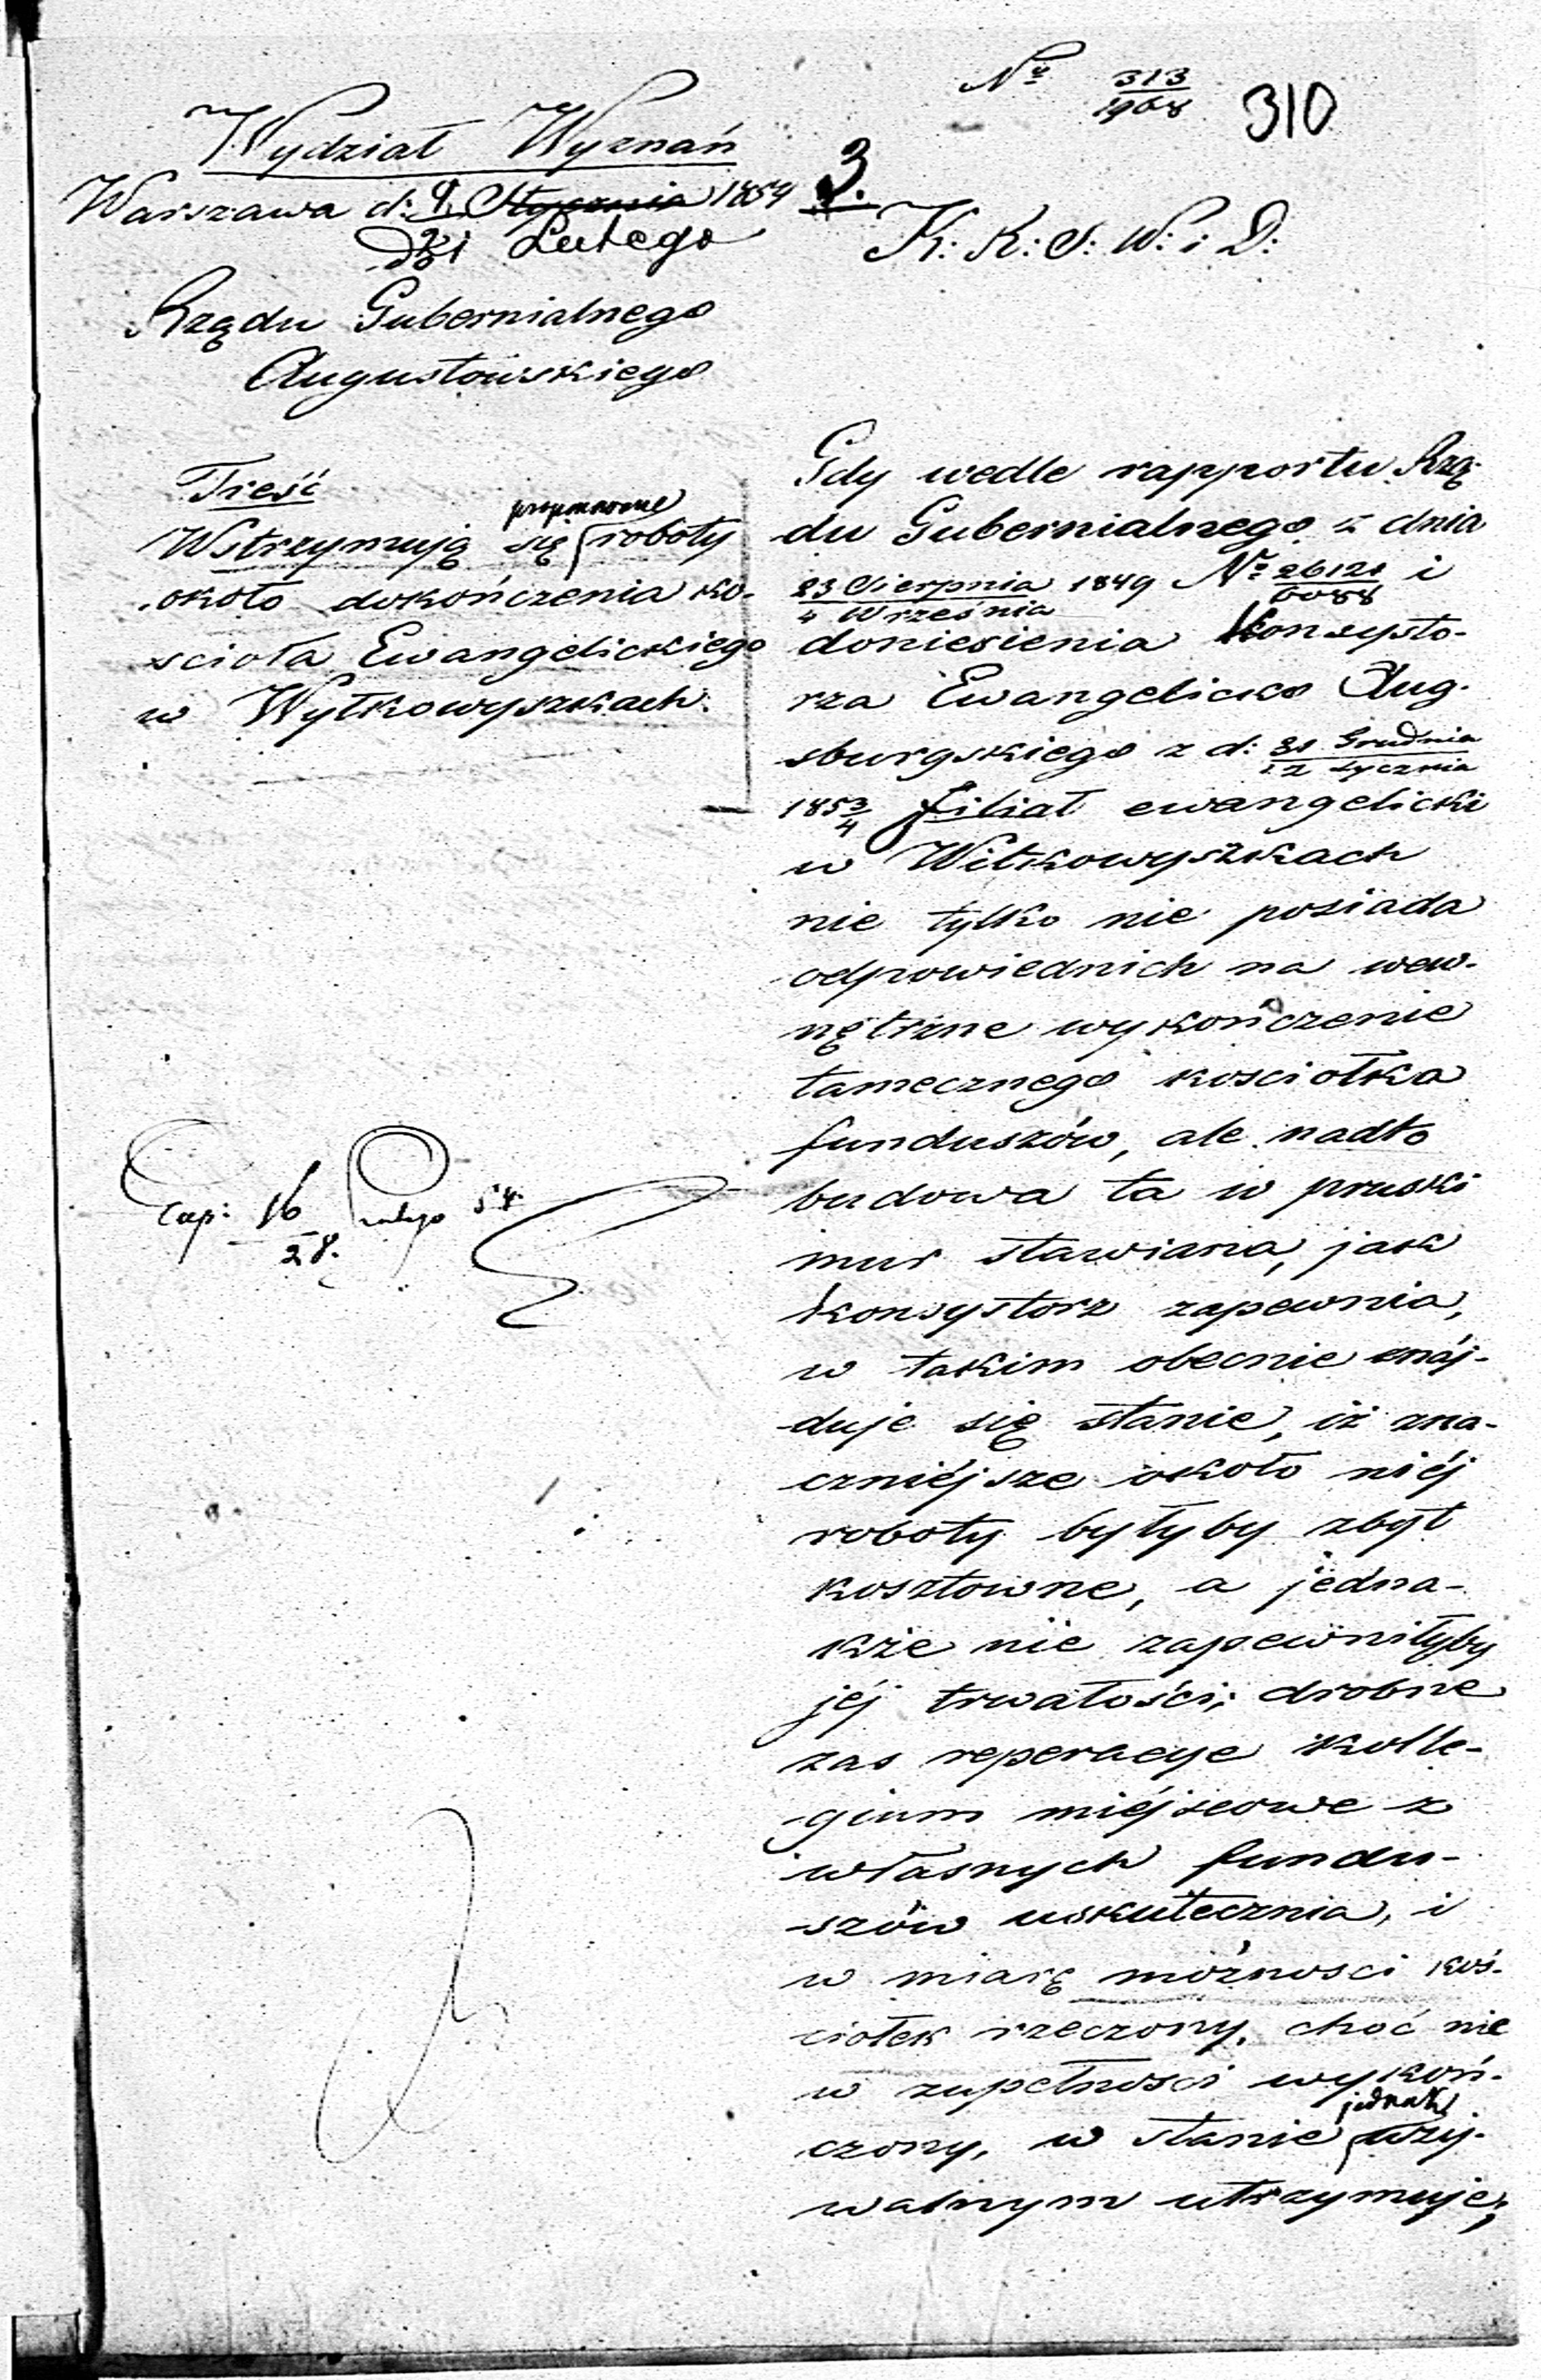 Nº 313/1968 310
Wydział Wyznań
Warszawa d: 9 Stycznia 1854 3.
21 Lutego
K: R: S: W: i D:
Rządu Gubernialnego
Augustowskiego
Treść
proponowane
Wstrzymują się roboty
około dokończenia ko-
scioła Ewangelickiego
w Wyłkowyszkach.
Gdy wedle rapportu Rzą-
du Gubernialnego z dnia
23 Sierpnia/4 Września 1849 Nº 26121/6088 i
doniesienia Konsysto-
rza Ewangelicko Aug-
sburgskiego z d: 31 Grudnia/12 Stycznia
1853/4 filiał ewangelicki
w Wiłkowyszkach
nie tylko nie posiada
odpowiednich na wew-
nętrzne wykończenie
tamecznego kosciołka
funduszów, ale nadto
budowa ta w pruski
mur stawiana, jak
Konsystorz zapewnia,
w takim obecnie znáj-
duje się stanie, iż zna-
czniéjsze około niéj
roboty byłyby zbyt
kosztowne, a jedna-
kże nie zapewniłyby
jéj trwałości; drobne
zas reperacye Kolle-
gium miéjscowe z
własnych fundu-
szów uskutecznia, i
w miarę możnosci koś-
ciołek rzeczony, choć nie
w zupełnosci wykoń-
jednak
czony, w stanie uży-
walnym utrzymuje;
Exp: 16/28. Lutego 54.